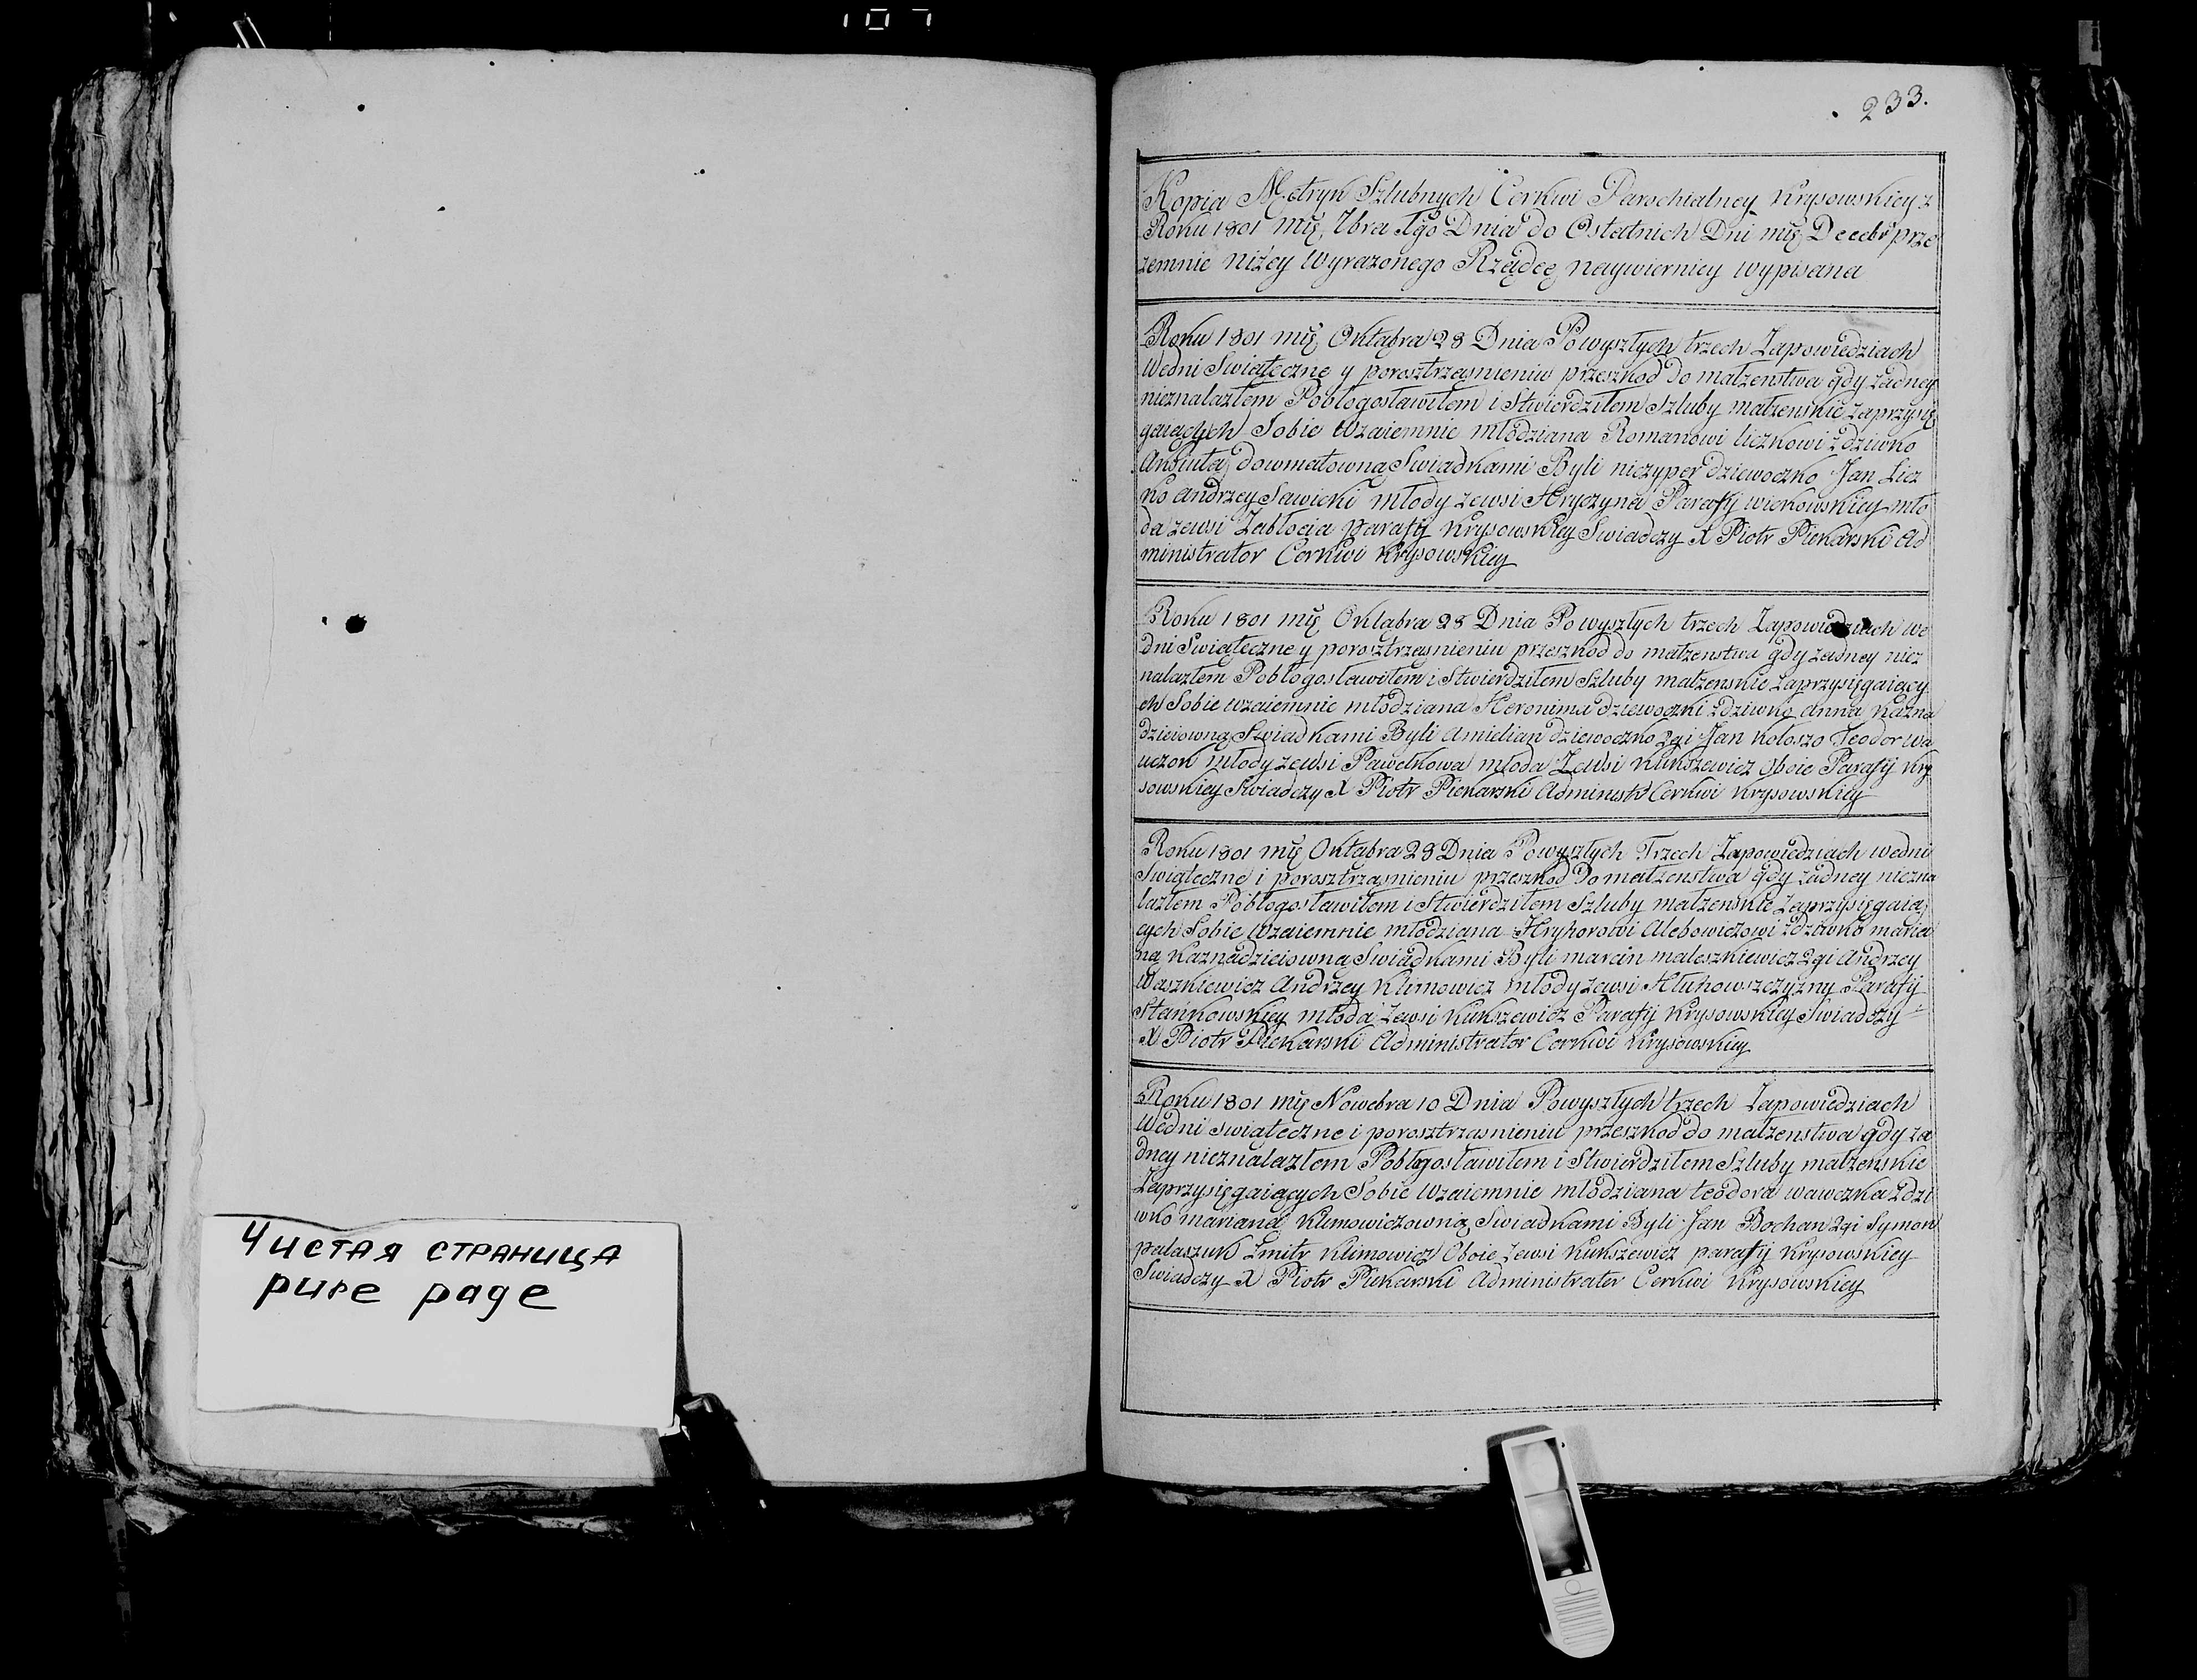 107
Чистая страница
pure page
233.
Kopia Metryk Szlubnych Cerkwi Parochialney Krysowskiey z
Roku 1801 mię 7bra 1go Dnia do Ostatnich Dni mię Decebr prze
zemnie niżey wyrazonego Rządcę naywierniey wypisana
Roku 1801 mię Oktabra 28 Dnia Po wyszłych trzech Zapowiedziach
wedni Swiąteczne y porosztrząsnieniu przeszkod do małzenstwa gdy żadney
nieznalazłem Pobłogosławiłem i Stwierdziłem Szluby małzenskie zaprzysię
gaiących Sobie wzaiemnie młodziana Romanowi liczkowi zdziwko
Anniutą dowmatowną Swiadkami Byli niczyper dziewoczko Jan Licz
ko Andrzey Sawicki młody zewsi Hryczyna Parafij wickowskiey mło
da zewsi Zabłocia parafij Krysowskiey Swiadczy X Piotr Piekarski Ad
ministrator Cerkwi Krysowskiey
Roku 1801 mię Oktabra 28 Dnia Po wyszłych trzech Zapowiedziach we
dni Swiąteczne y porosztrząsnieniu przeszkod do małzenstwa gdy żadney niez
nalazłem Pobłogosławiłem i Stwierdziłem Szluby małzenskie zaprzysięgaiący
ch Sobie wzaiemnie młodziana Heronima dziewoczki zdziwko Anną Kazna
dzieiowną Swiadkami Byli Amielian dziewoczko 2gi Jan Kołoszo Teodor wa
uczok młody zewsi Pawełkowa młoda Zewsi Kukszewicz Oboie Parafij Kry
sowskiey Swiadczy X Piotr Piekarski Administr Cerkwi Krysowskiey
Roku 1801 mię Oktabra 28 Dnia Po wyszłych Trzech Zapowiedziach wedni
Swiąteczne i porosztrząsnieniu przeszkod Do małzenstwa gdy żadney niezna
lazłem Pobłogosławiłem i Stwierdziłem Szluby małzenskie Zaprzysięgaią
cych Sobie wzaiemnie młodziana Hryhorowi Alebowiczowi zdziwko maria
ną Kaznadzieiowną Swiadkami Byli marcin maleszkiewicz 2gi Andrzey
Waszkiewicz Andrzey Klimowicz młody zewsi Hłuhowszczyzny Parafij
Stańkowskiey młoda Zewsi Kukszewicz Parafij Krysowskiey Swiadczy
X Piotr Piekarski Administrator Cerkwi Krysowskiey
Roku 1801 mię Nowebra 10 Dnia Po wyszłych trzech Zapowiedziach
wedni swiąteczne i porosztrząsnieniu przeszkod do małzenstwa gdy ża
dney nieznalazłem Pobłogosławiłem i Stwierdziłem Szluby małzenskie
Zaprzysięgaiących Sobie wzaiemnie młodziana teodora wawczka zdzi
wko marianą Klimowiczowną Swiadkami Byli Jan Bochan 2gi Symon
pałaszuk Zmitr Klimowicz Oboie Zewsi Kukszewicz parafij Krysowskiey
Swiadczy X Piotr Piekarski Administrator Cerkwi Krysowskiey